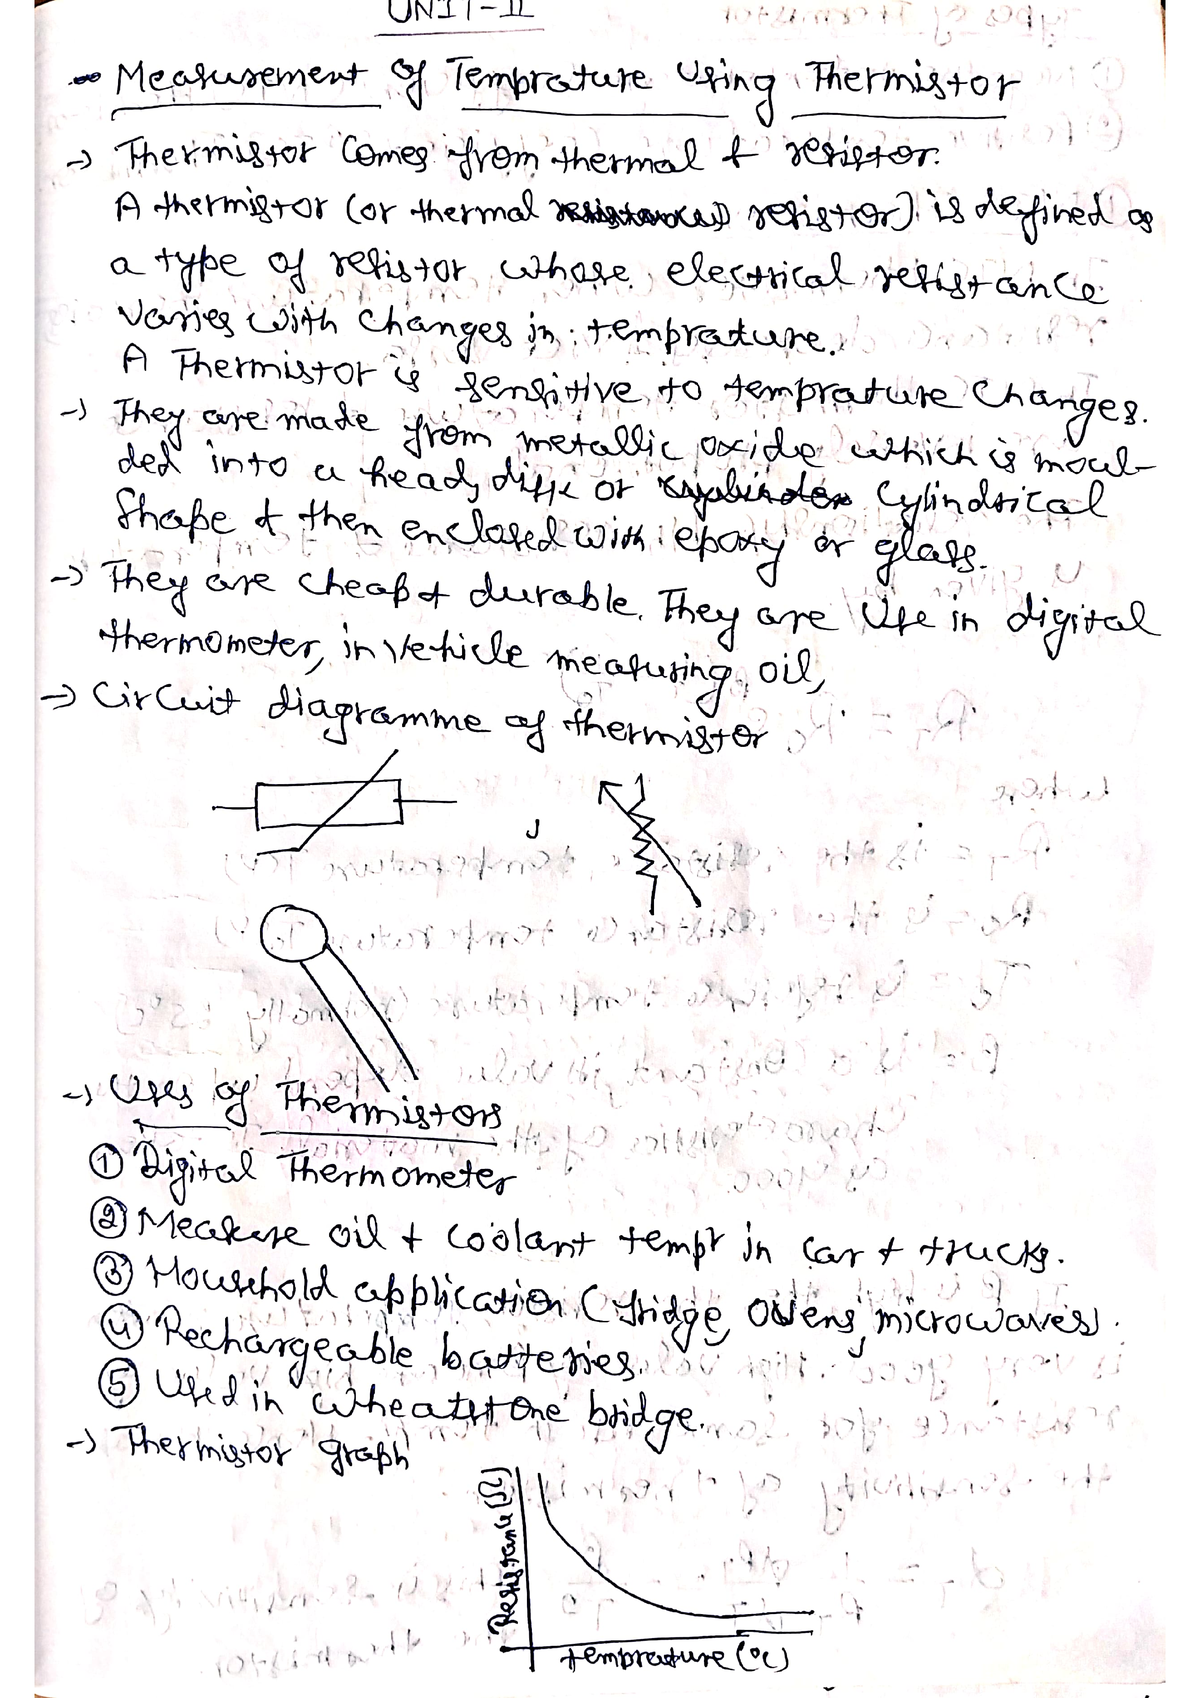 UNIT-II
Measurement of Temprature Using Thermistor
-> Thermistor Comes from thermal & resistor.
A thermistor (or thermal resistor) is defined as
a type of resistor whose electrical resistance
Varies with Changes in temprature.
A Thermistor is sensitive to temprature Changes.
-> They are made from metallic oxide which is moul-
ded into a head, disk or Cylindrical
Shape & then enclosed with epoxy or glass.
-> They are cheap & durable. They are Use in digital
thermometer, in vehicle measuring oil,
-> Circuit diagramme of thermistor
-> Uses of Thermistors
① Digital Thermometer
② Measure oil & coolant tempr in Car & trucks.
③ Household application (fridge, Ovens, microwaves).
④ Rechargeable batteries.
⑤ Used in wheatstone bridge.
-> Thermistor graph
Resistance (Ω)
temprature (°c)